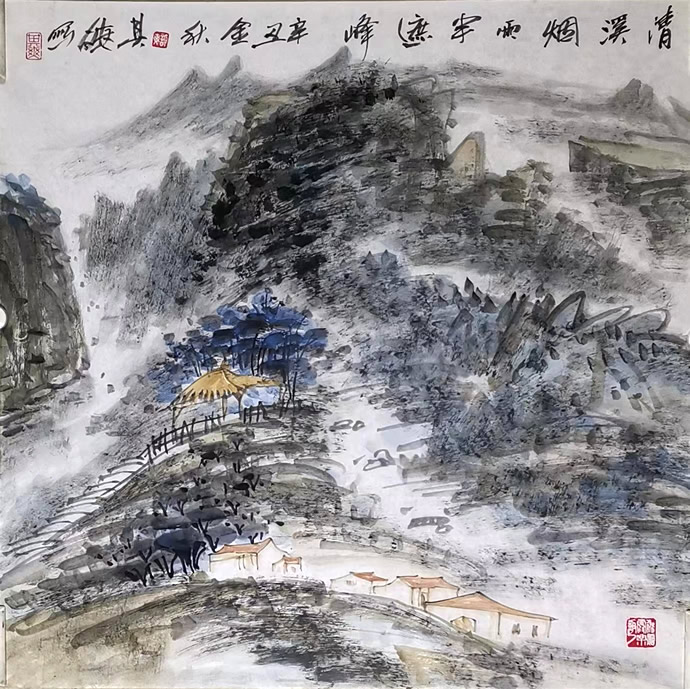 清溪烟雨半遮峰 辛丑金秋 其梅写